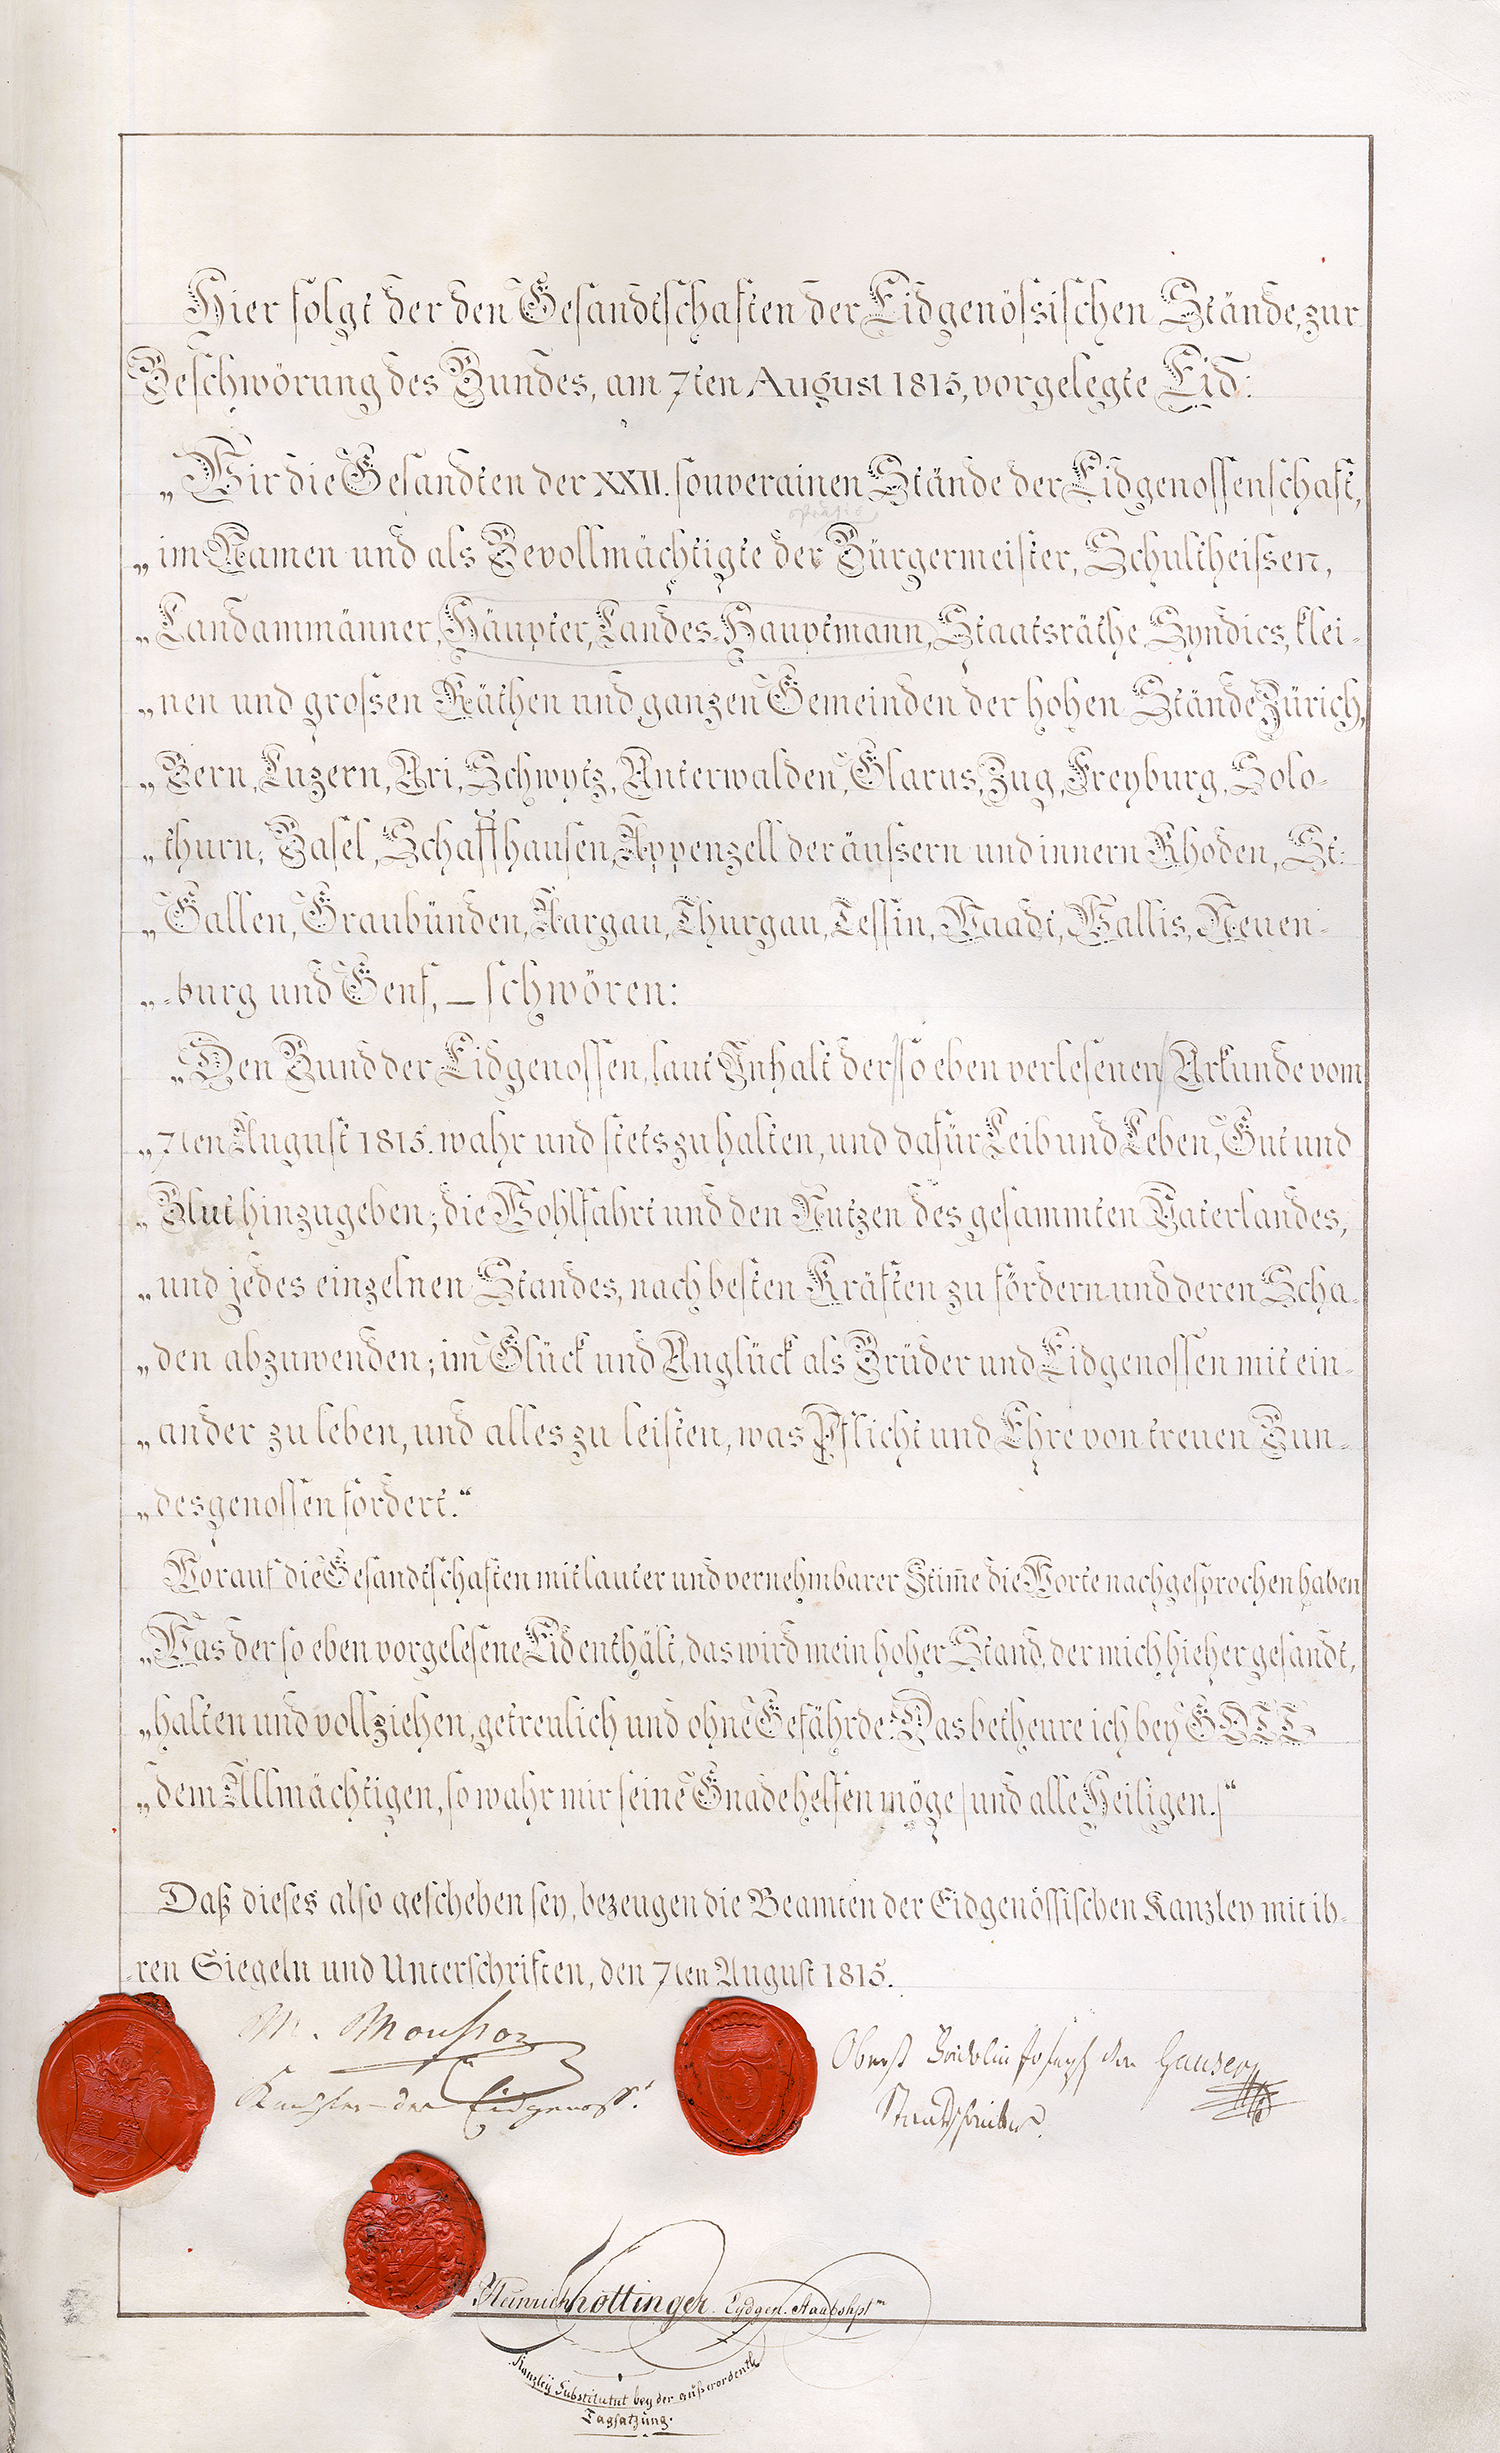 Hier folgt der den Gesandtschaften der Eidgenössischen Stände, zur
Beschwörung des Bundes, am 7ten August 1815, vorgelegte Eid:
„Wir die Gesandten der XXII. souverainen Stände der Eidgenossenschaft,
„im Namen und als Bevollmächtigte der Bürgermeister, Schultheissen,
„Landammänner, Häupter, Landes-Hauptmann, Staatsräthe, Syndics, klei-
„nen und grossen Räthen und ganzen Gemeinden der hohen Stände Zürich,
„Bern, Luzern, Uri, Schwytz, Unterwalden, Glarus, Zug, Freyburg, Solo-
„thurn, Basel, Schaffhausen, Appenzell der äussern und innern Rhoden, St:
„Gallen, Graubünden, Aargau, Thurgau, Tessin, Waadt, Wallis, Neuen-
„-burg und Genf, – schwören:
„Den Bund der Eidgenossen, laut Inhalt der /so eben verlesenen/ Urkunde vom
„7ten August 1815. wahr und stets zu halten, und dafür Leib und Leben, Gut und
„Blut hinzugeben; die Wohlfahrt und den Nutzen des gesammten Vaterlandes,
„und jedes einzelnen Standes, nach besten Kräften zu fördern und deren Scha-
„den abzuwenden; im Glück und Unglück als Brüder und Eidgenossen mit ein-
„ander zu leben, und alles zu leisten, was Pflicht und Ehre von treuen Bun-
„desgenossen fordert.“
Worauf die Gesandtschaften mit lauter und vernehmbarer Stim̄e die Worte nachgesprochen haben
„Was der so eben vorgelesene Eid enthält, das wird mein hoher Stand, der mich hieher gesandt,
„halten und vollziehen, getreulich und ohne Gefährde. Das betheure ich bey GOTT
„dem Allmächtigen, so wahr mir seine Gnade helfen möge /und alle Heiligen./“
Daß dieses also geschehen sey, bezeugen die Beamten der Eidgenössischen Kanzley mit ih-
-ren Siegeln und Unterschriften, den 7ten August 1815.
M. Mousson
Kanzler der Eidgenoss.t
Oberst Fridolin Joseph von Hauser
Staatsschreiber.
J Heinrich Hottinger Eydgen. Staabshptm
Kanzley Substitutut bey der außerordentl.
Tagsatzung.